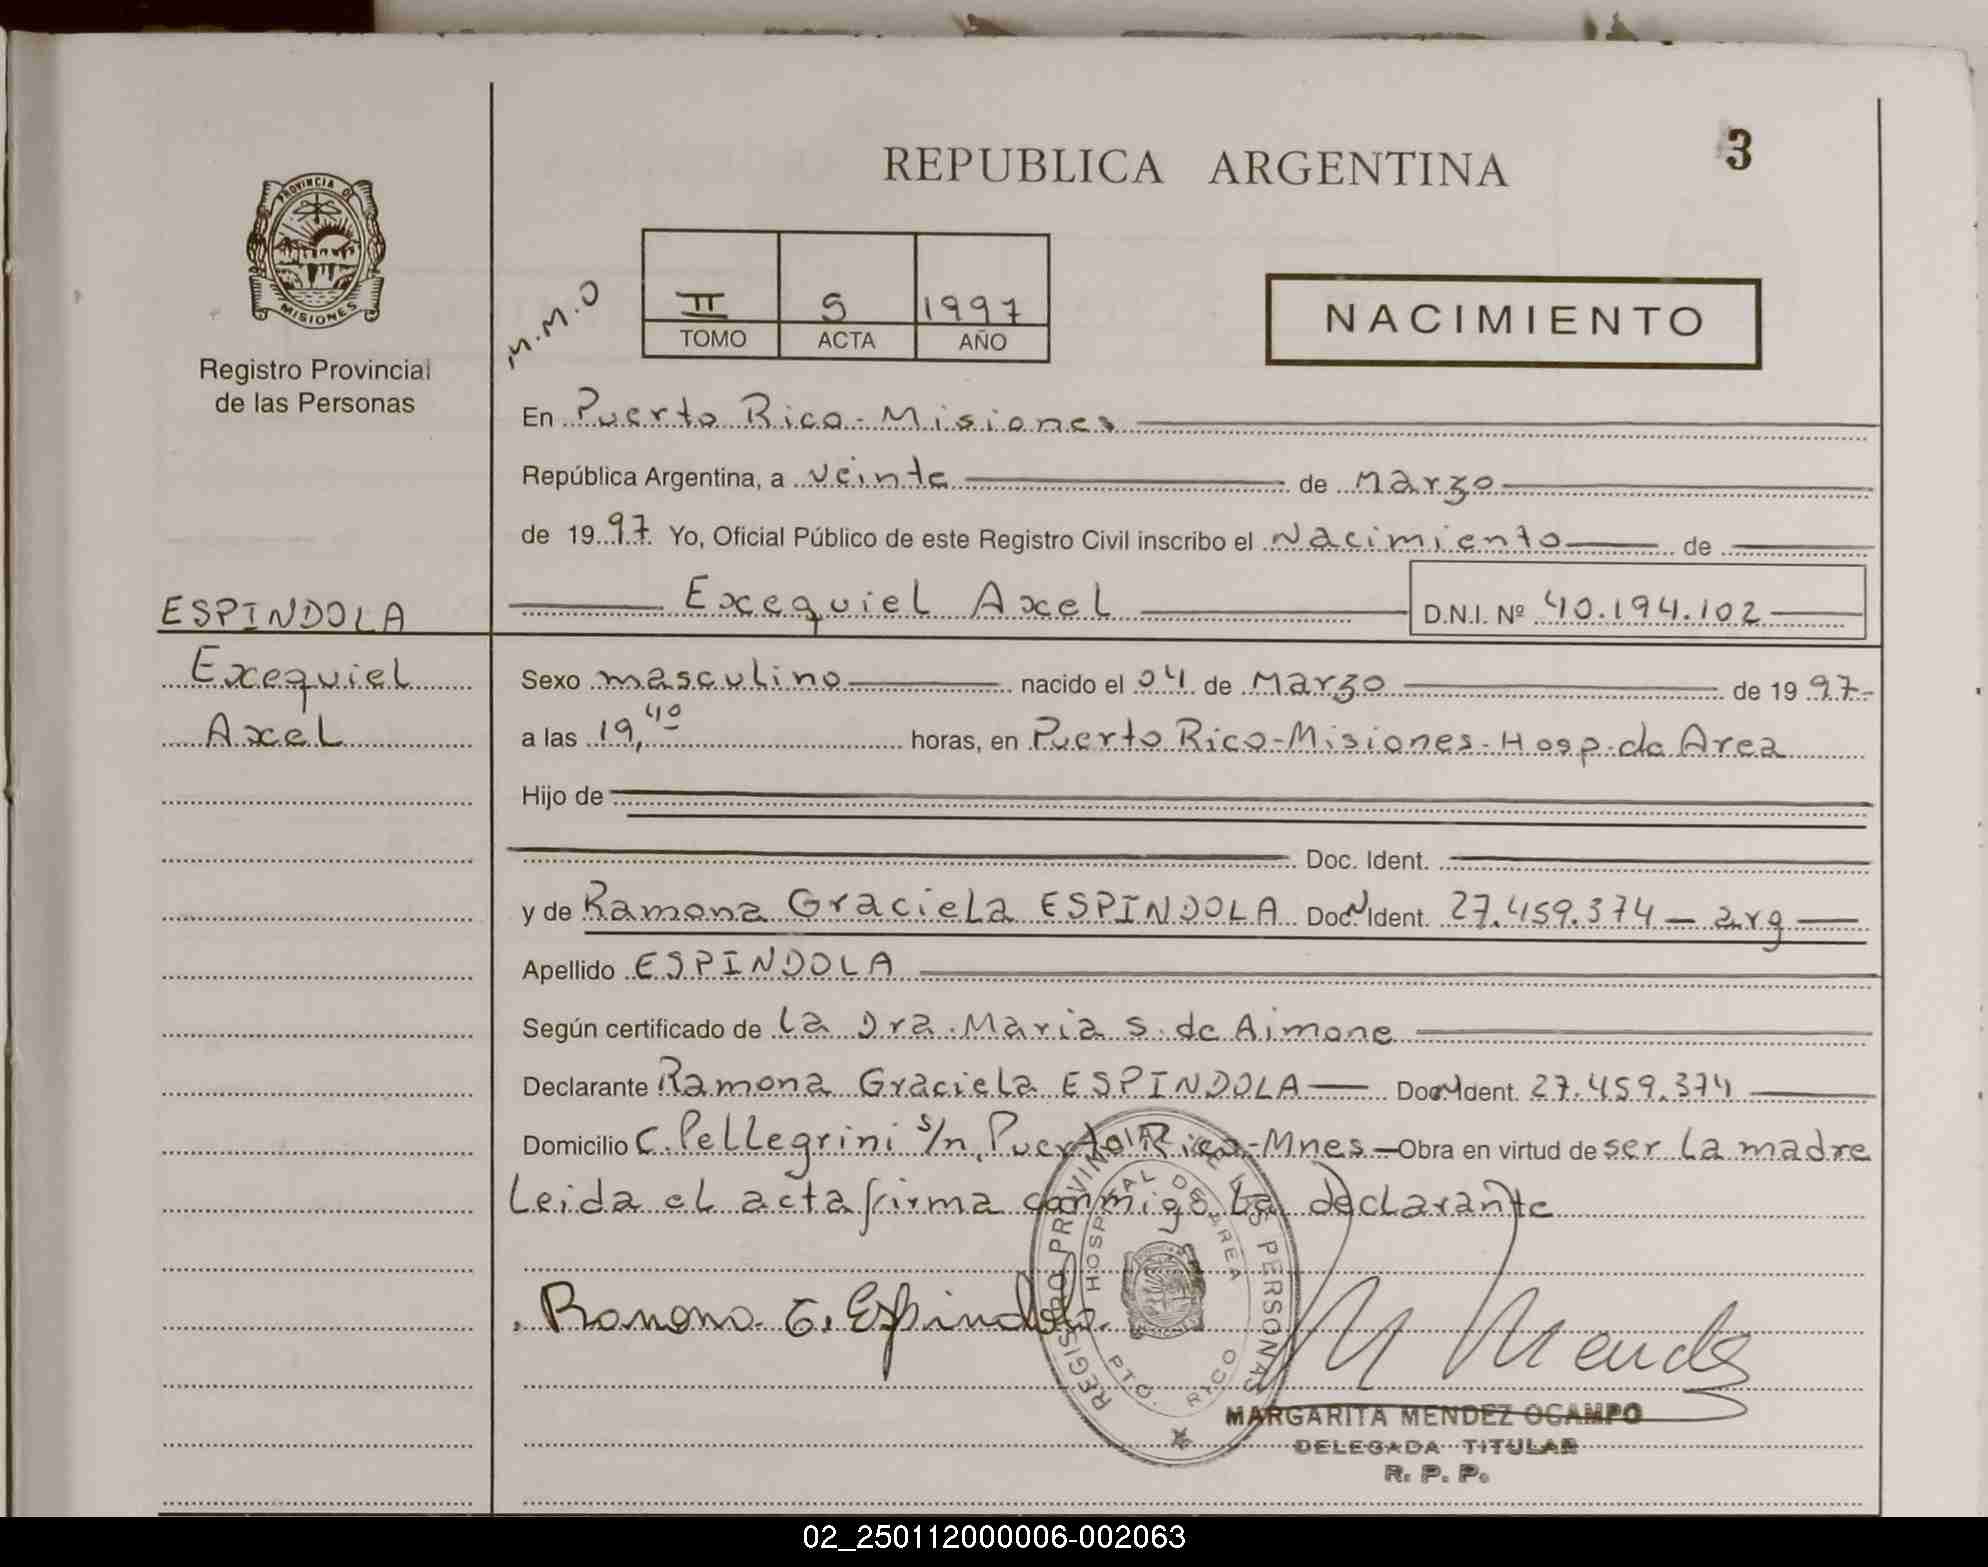 3
REPUBLICA ARGENTINA
PROVINCIA DE
MISIONES
Registro Provincial
de las Personas
M.M.O
II 5 1997
TOMO ACTA AÑO
NACIMIENTO
En Puerto Rico - Misiones
República Argentina, a veinte de Marzo
de 1997 Yo, Oficial Público de este Registro Civil inscribo el Nacimiento de
Exequiel Axel D.N.I. Nº 40.194.102
ESPINDOLA
Exequiel
Axel
Sexo masculino nacido el 04 de Marzo de 1997-
a las 19,40 horas, en Puerto Rico-Misiones-Hosp. de Area
Hijo de
Doc. Ident.
y de Ramona Graciela ESPINDOLA Doc. Ident. 27.459.374 - arg
Apellido ESPINDOLA
Según certificado de La Dra. Maria S. de Aimone
Declarante Ramona Graciela ESPINDOLA Doc. Ident. 27.459.374
Domicilio C. Pellegrini s/n, Puerto Rico-Mnes.- Obra en virtud de ser la madre
Leida el acta firma conmigo la declarante
Ramona G. Espindola.
M Mendez
REGISTRO PROVINCIAL DE LAS PERSONAS
HOSPITAL DE AREA
PTO. RICO
MARGARITA MENDEZ OCAMPO
DELEGADA TITULAR
R. P. P.
02_250112000006-002063